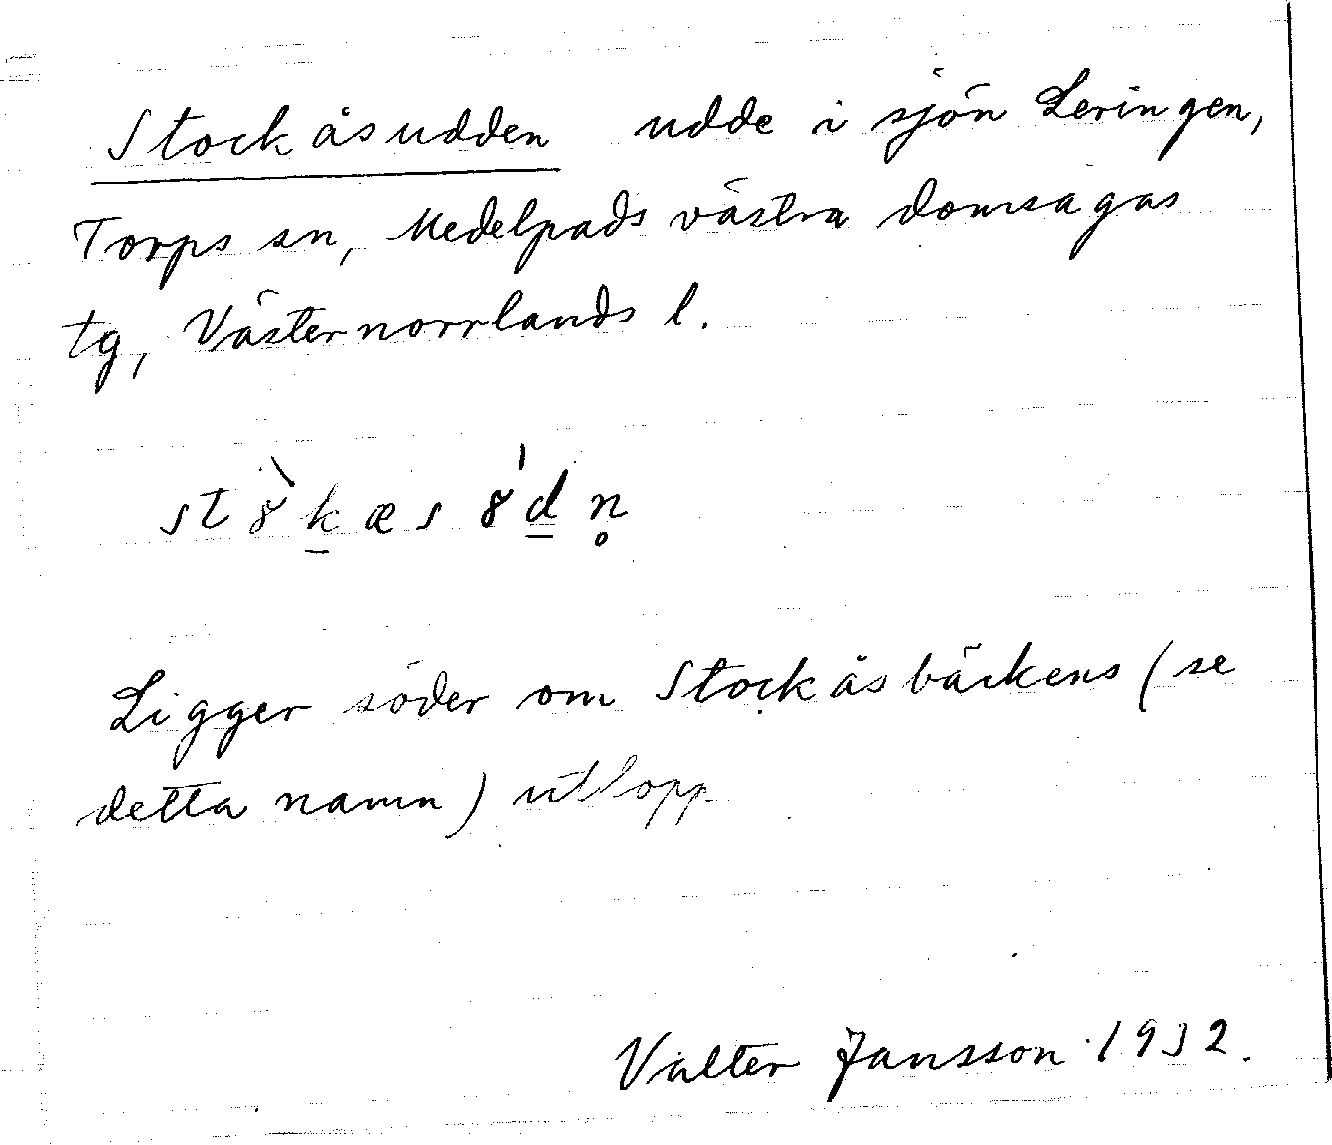 Stockåsudden udde i sjön Leringen,
Torps sn, Medelpads västra domsagas
tg, Västernorrlands l.
st8̀k̲æs8̍d̲n̥
Ligger söder om Stockåsbäckens (se
detta namn) utlopp
Valter Jansson 1932.